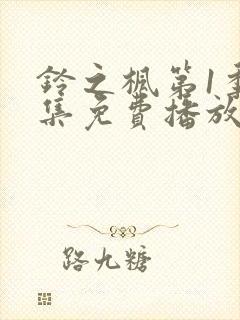 铃之枫第1季
集免费播放
路九糖